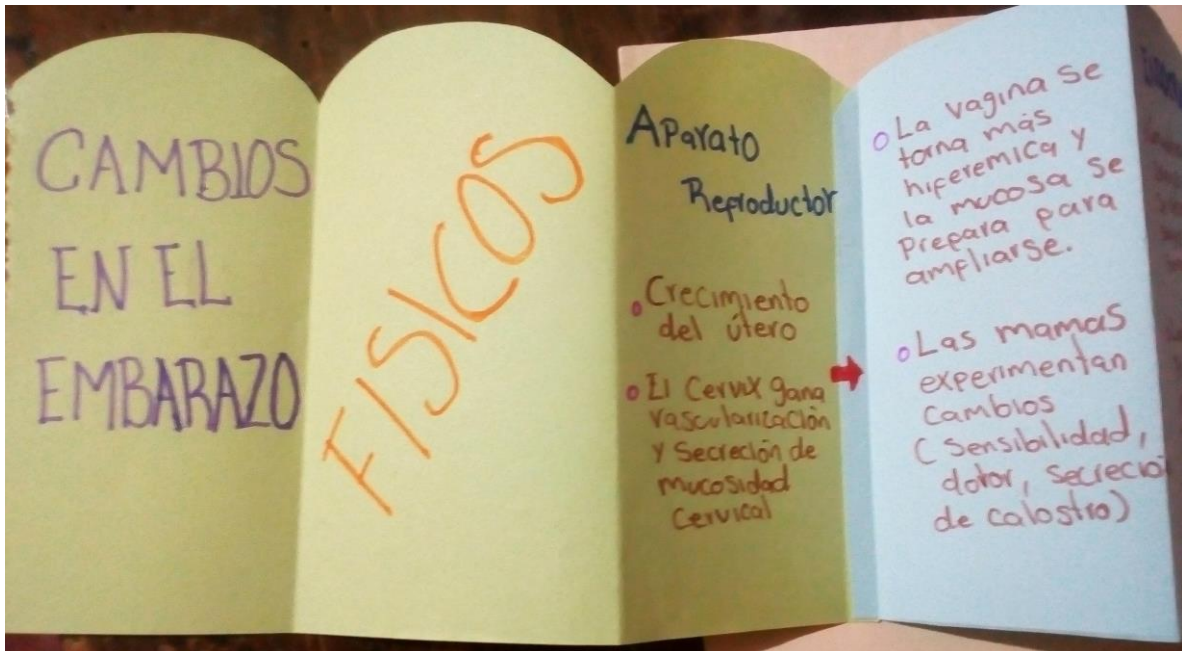 CAMBIOS
EN EL
EMBARAZO
FISICOS
Aparato
Reproductor
Crecimiento
del útero
El Cervix gana
vascularización
y Secreción de
mucosidad
Cervical
La vagina se
torna más
hiperemica y
la mucosa se
prepara para
ampliarse.
Las mamas
experimentan
cambios
(Sensibilidad,
dolor, secreció
de calostro)